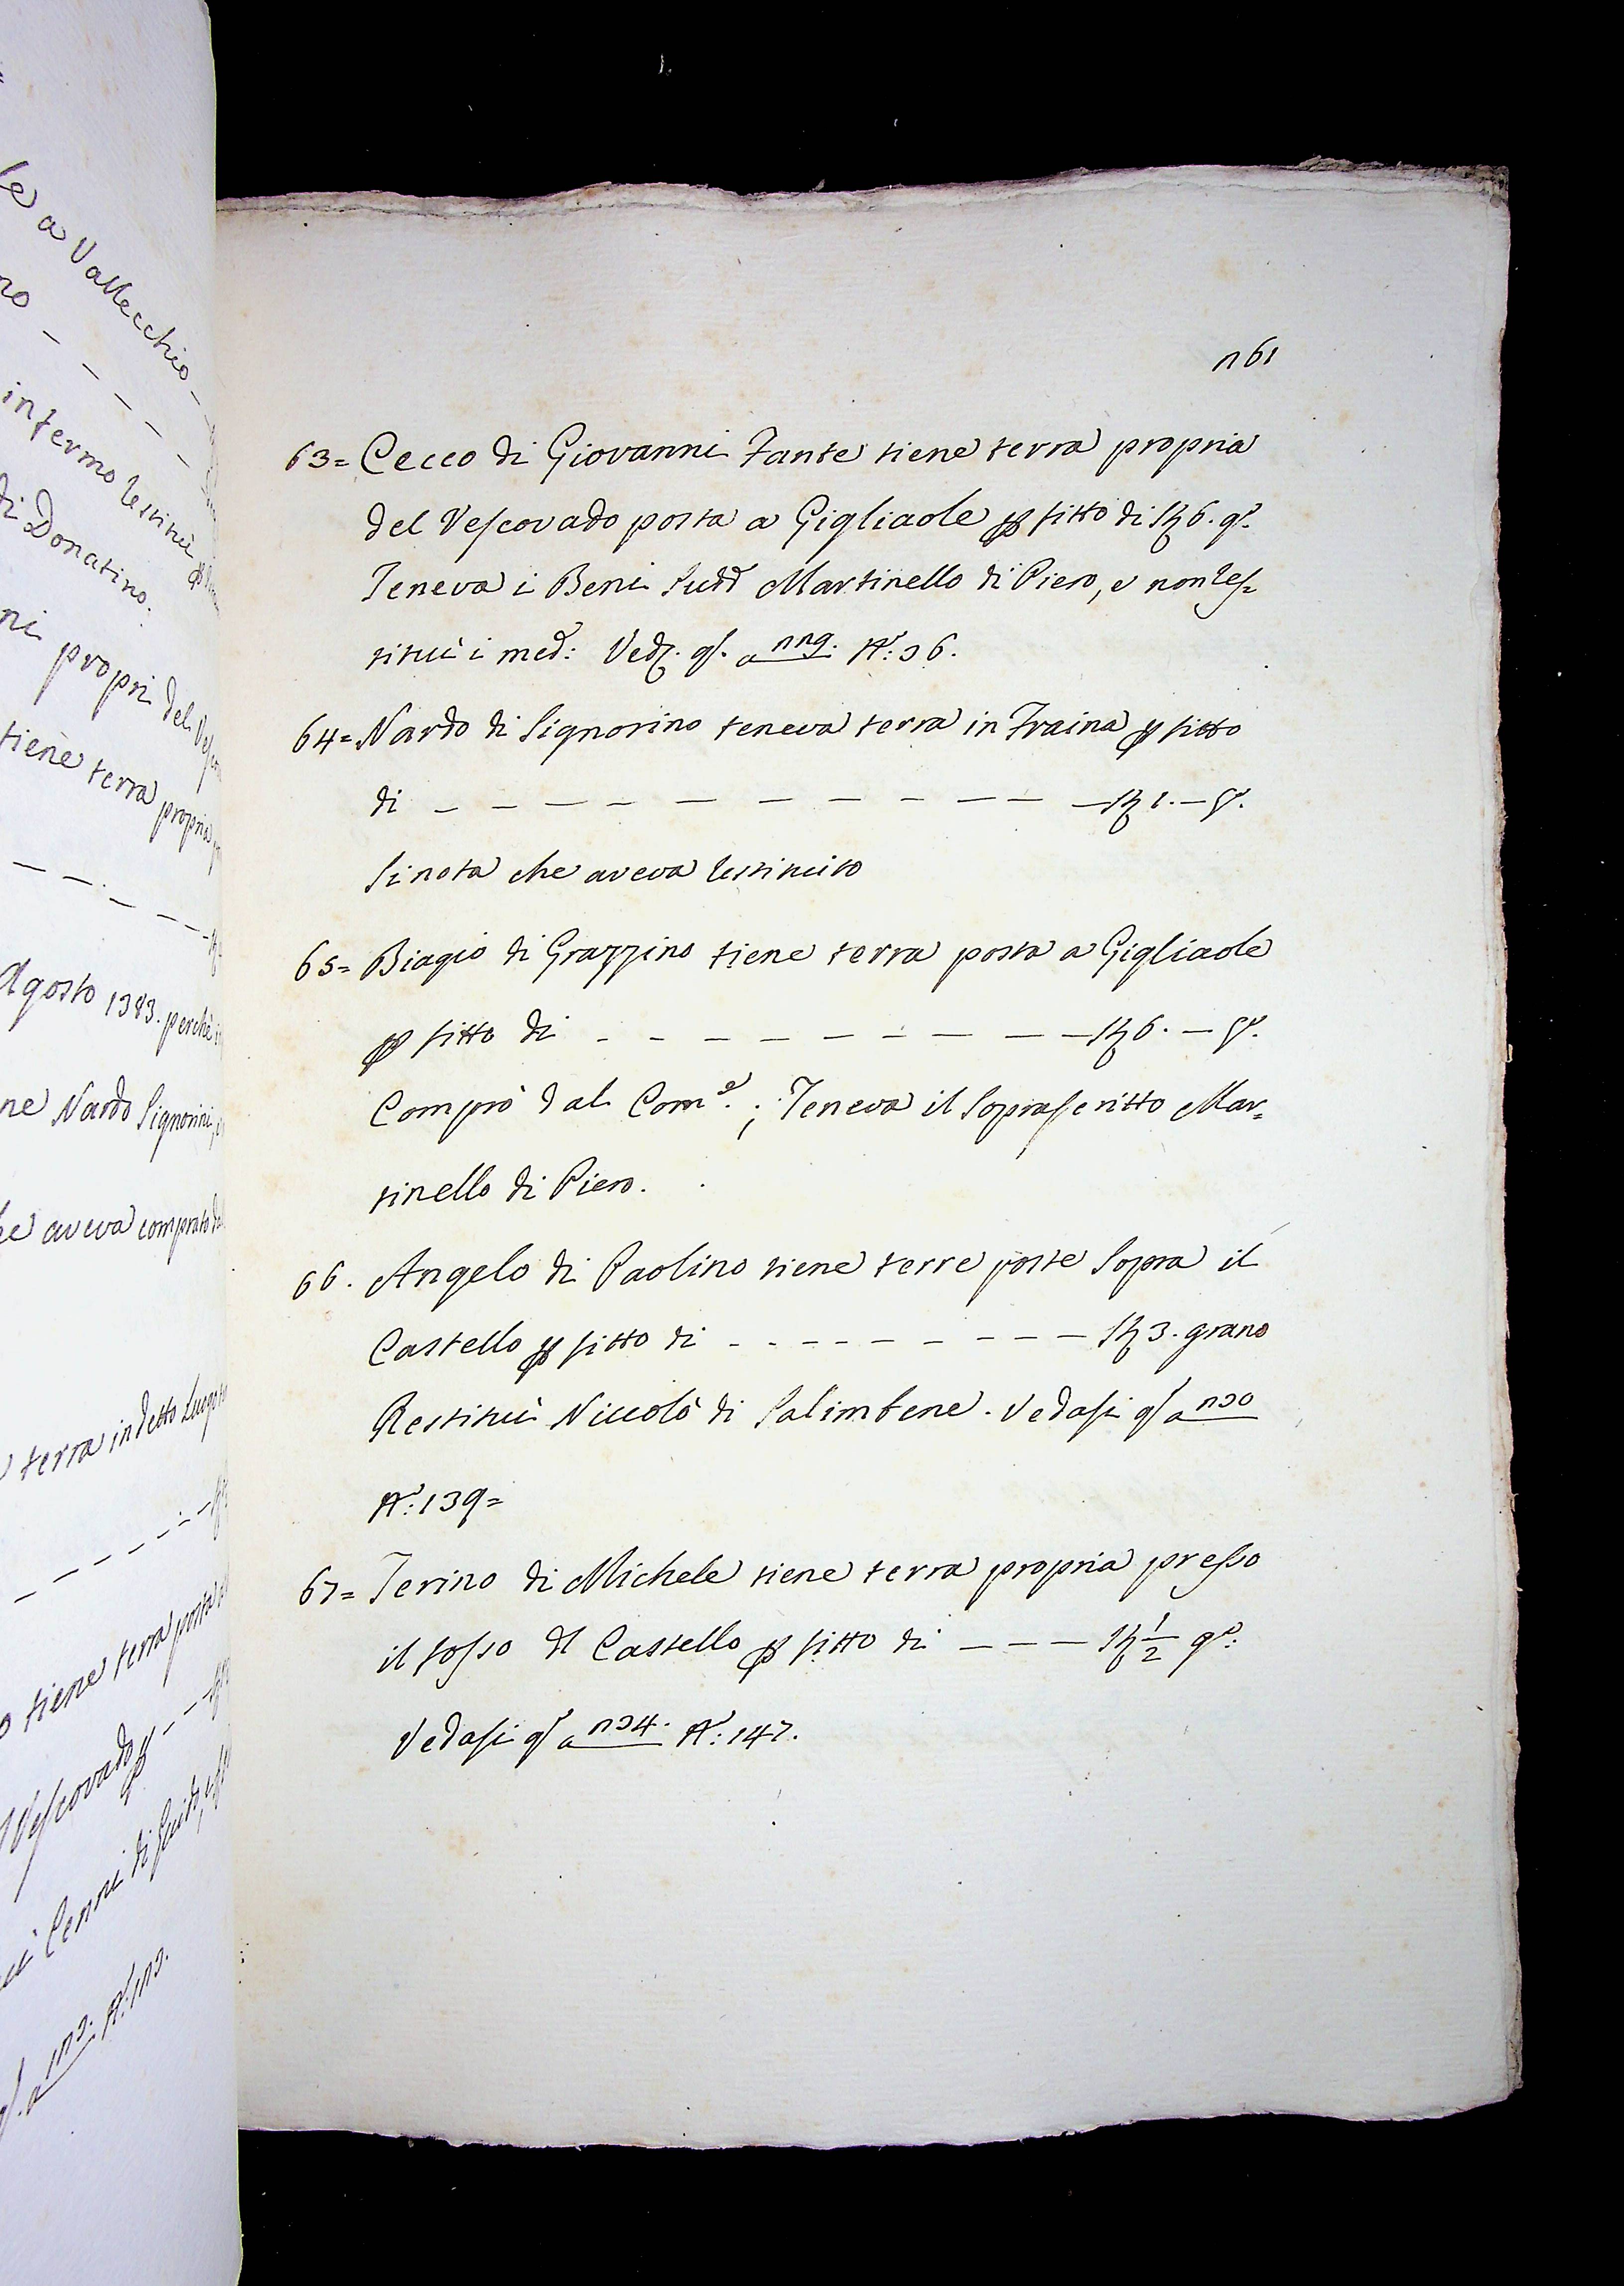 261
63= Cecco di Giovanni Fante tiene terra propria
del Vescovado posta a Gigliaole p fitto di St 6. g.º
Teneva i Beni Sudd.ⁱ Martinello di Piero, e non res=
tituì i med: Ved. qs. a 229. N.º: 36.
64= Nardo di Signorino teneva terra in Fraina p fitto
di — — — — — — — — — — St 1. — g.º
Si nota che aveva restituito
65= Biagio di Grazzino tiene terra posta a Gigliaole
p fitto di — — — — — — — — — St 6. — g.º
Comprò dal Com.e; Teneva il soprascritto Mar=
tinello di Piero.
66. Angelo di Paolino tiene terre poste sopra il
Castello p fitto di — — — — — — — — St 3. grano
Restituì Niccolò di Salimbene. Vedasi qs a 230
N.º: 139=
67= Terino di Michele tiene terra propria presso
il fosso dl Castello p fitto di — — — St ½ g.º:
Vedasi qs a 234. N.º: 147.
le a Vallecchio
no — — — —
infermo restituì p
di Donatino.
ni propri del Ves
tiene terra propria
— — — — —
Agosto 1383. perchè
ne Nardo Signorini,
he aveva comprato
terra in detto Luogo
— — — — — —
o tiene terra posta
Vescovado p — —
Cenni di Guido,
qs. a